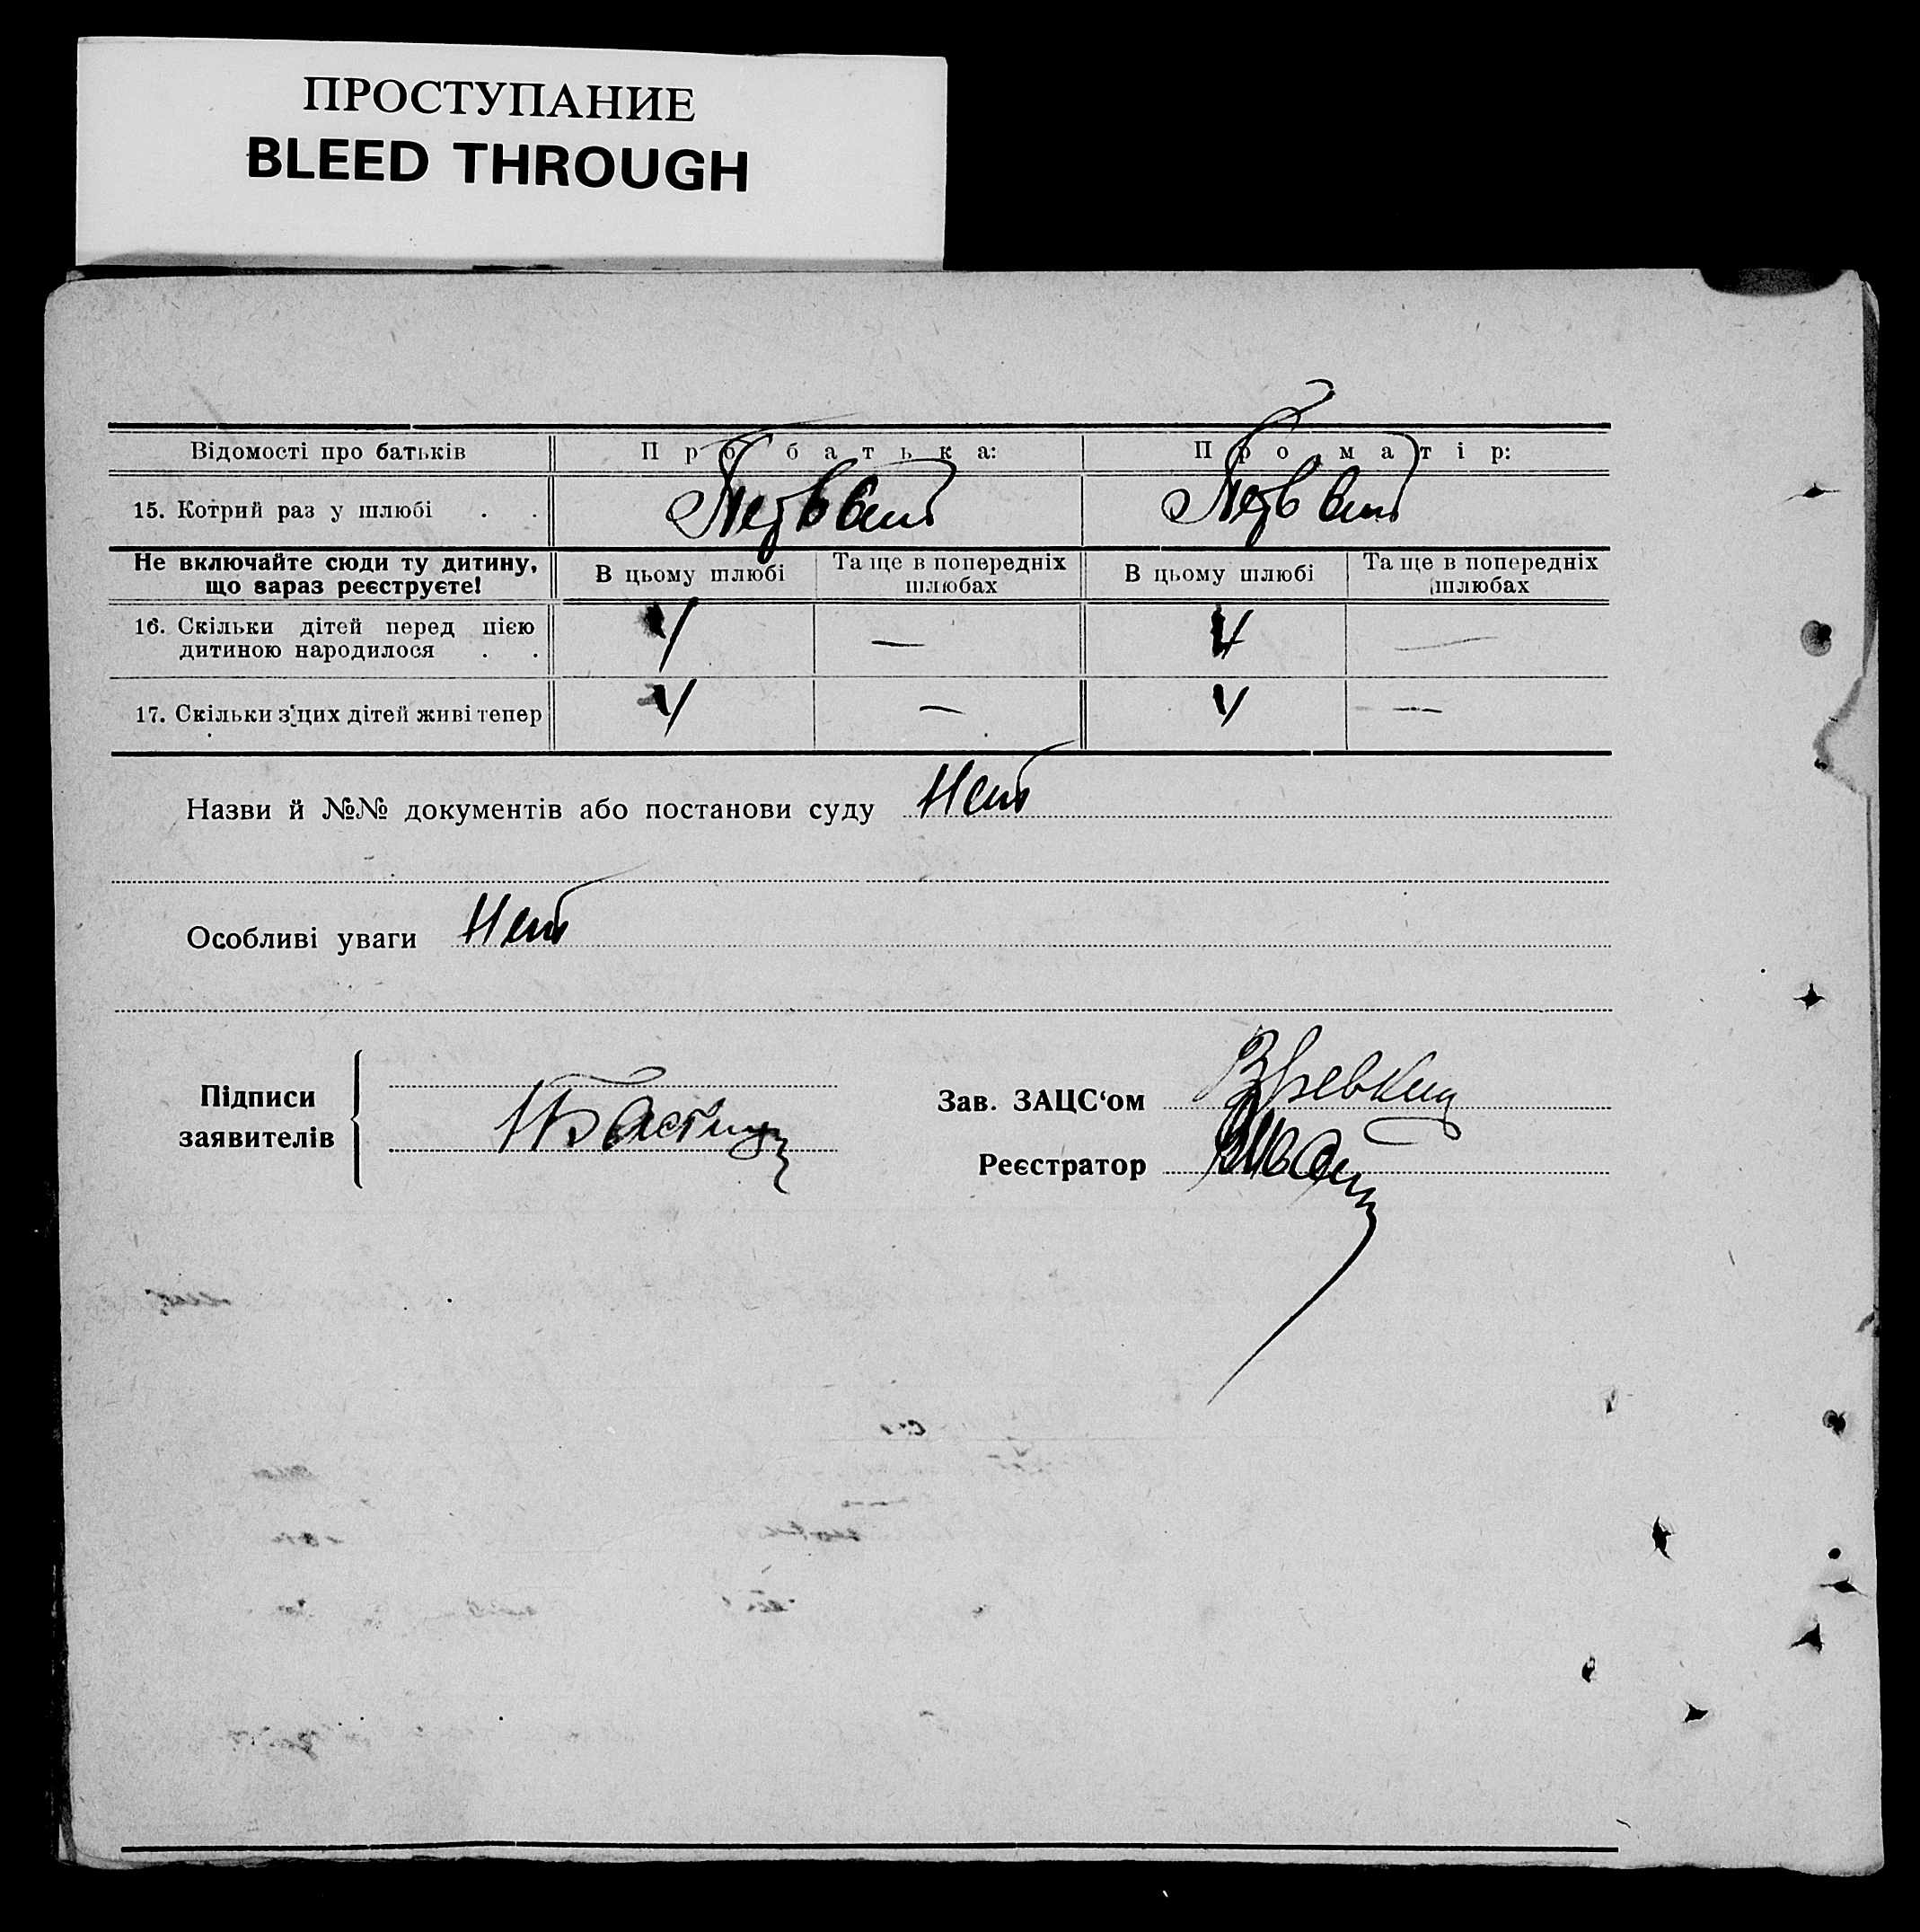 ПРОСТУПАНИЕ
BLEED THROUGH
Відомості про батьків Про батька: Про матір:
15. Котрий раз у шлюбі . . Первый Первый
Не включайте сюди ту дитину, що зараз реєструєте! В цьому шлюбі Та ще в попередніх шлюбах В цьому шлюбі Та ще в попередніх шлюбах
16. Скільки дітей перед цією
дитиною народилося . . 4 — 4 —
17. Скільки з'цих дітей живі тепер 4 — 4 —
Назви й №№ документів або постанови суду Нет
Особливі уваги Нет
Підписи
заявителів
Зав. ЗАЦС‘ом
Реєстратор